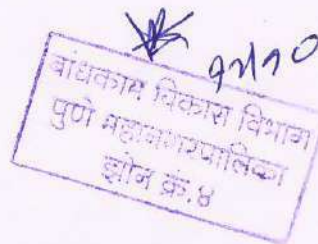 १२/१०
बांधकाम विकास विभाग
पुणे महानगरपालिका
झोन क्रं.४